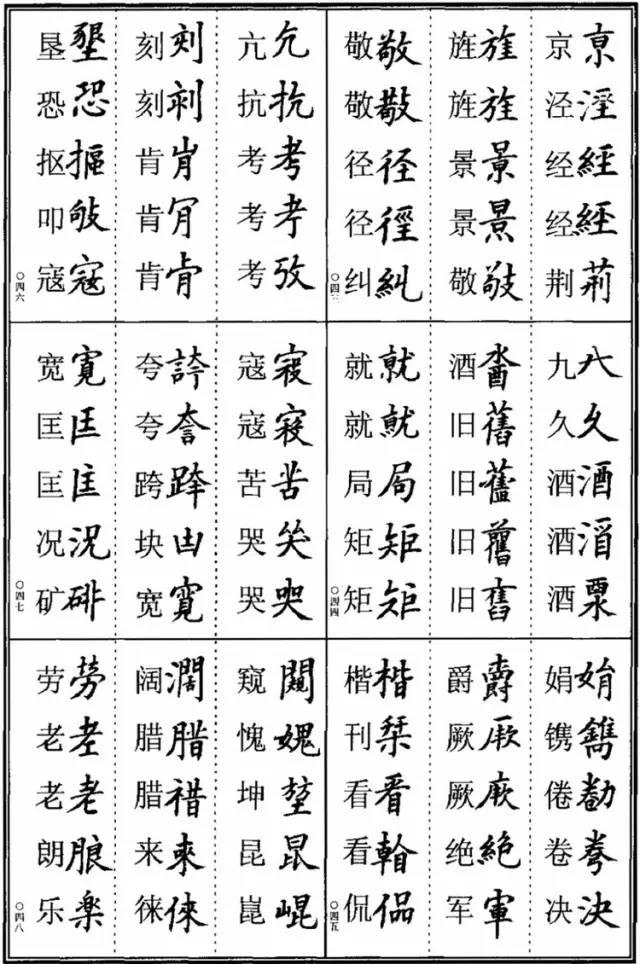 京亰 泾淫 经經 经經 荆荊
旌旌 旌旌 景景 景景 敬敬
敬敬 敬敬 径径 径徑 纠糾
〇四三
九 久久 酒酒 酒 酒
酒 旧舊 旧 旧舊 旧舊
就就 就就 局局 矩矩 矩矩
〇四四
娟娟 镌鐫 倦勌 卷 决決
爵爵 厥厥 厥厥 绝絕 军軍
楷楷 刊栞 看看 看翰 侃侃
〇四五
亢亢 抗抗 考考 考考 考攷
刻刻 刻刻 肯肯 肯肎 肯肯
垦墾 恐恐 抠摳 叩敂 寇寇
〇四六
寇寇 寇寇 苦苦 哭 哭哭
夸誇 夸 跨跨 块凷 宽寬
宽寬 匡匡 匡匡 况況 矿
〇四七
窥闚 愧媿 坤 昆昆 崑崐
阔濶 腊腊 腊 来來 徕倈
劳勞 老老 老老 朗朖 乐楽
〇四八